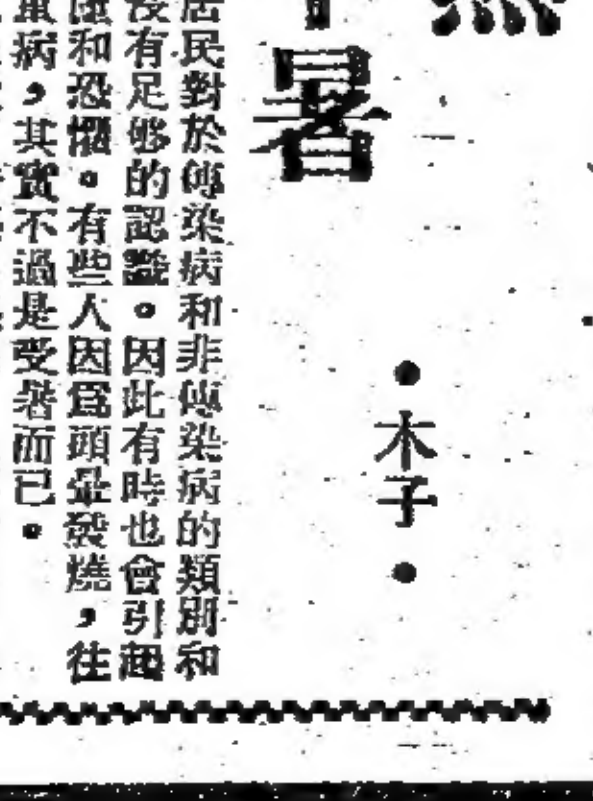 暑
木子
居民對於傳染病和非傳染病的類別和
沒有足够的認識。因此有時也會引起
和恐懼。有些人因爲頭暈發燒，往
病，其實不過是受暑而已。